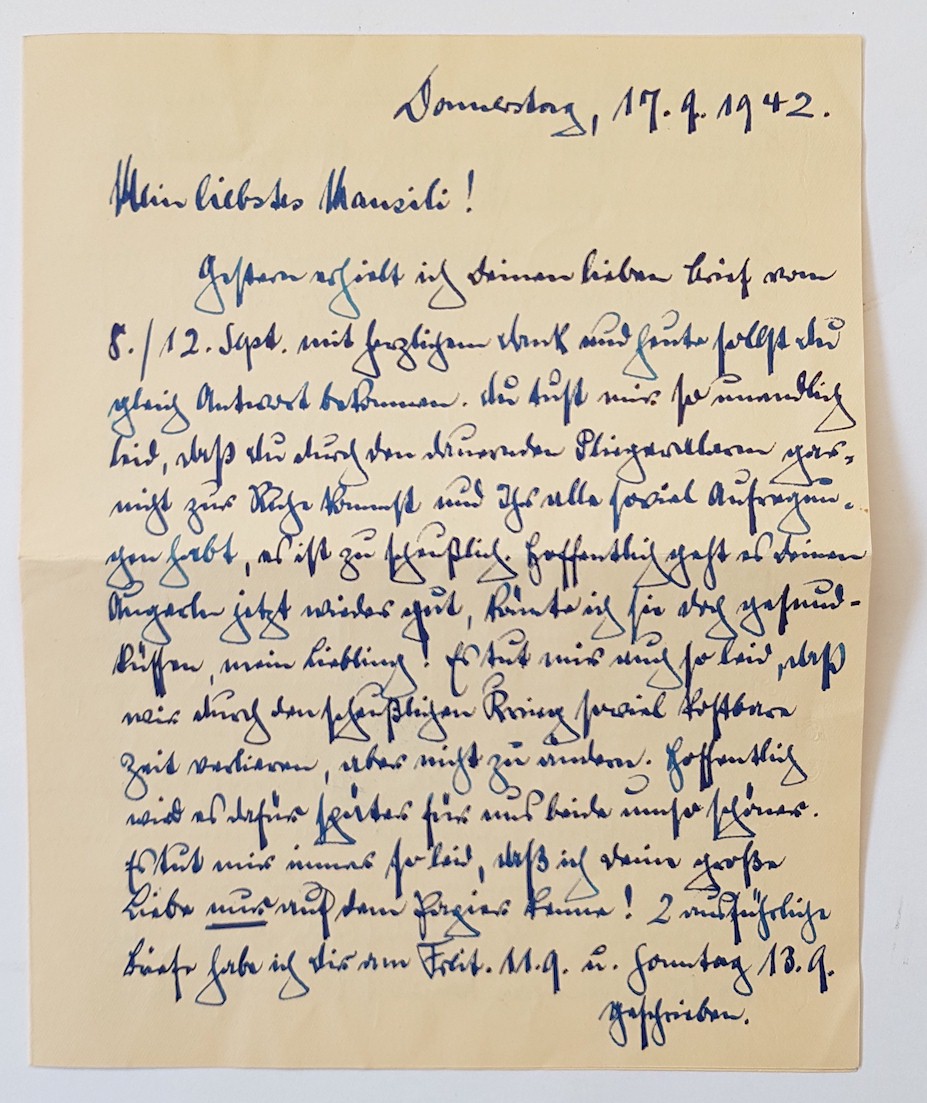 Donnerstag, 17.9.1942.
Mein liebstes Mausili!
Gestern erhielt ich Deinen lieben Brief vom
8./12. Sept. mit herzlichem Dank und heute sollst Du
gleich Antwort bekommen. Du tust mir so unendlich
leid, daß Du durch den dauernden Fliegeralarm gar-
nicht zur Ruhe kommst und Ihr alle soviel Aufregun-
gen habt, es ist zu scheußlich. Hoffentlich geht es Deinen
Äugerln jetzt wieder gut, könnte ich sie doch gesund-
küssen, mein Liebling! Es tut mir auch so leid, daß
wir durch den scheußlichen Krieg soviel kostbare
Zeit verlieren, aber nicht zu ändern. Hoffentlich
wird es dafür später für uns beide umso schöner.
Es tut mir immer so leid, daß ich Deine große
Liebe nur auf dem Papier kenne! 2 ausführliche
Briefe habe ich Dir am Freit. 11.9. u. Sonntag 13.9.
geschrieben.